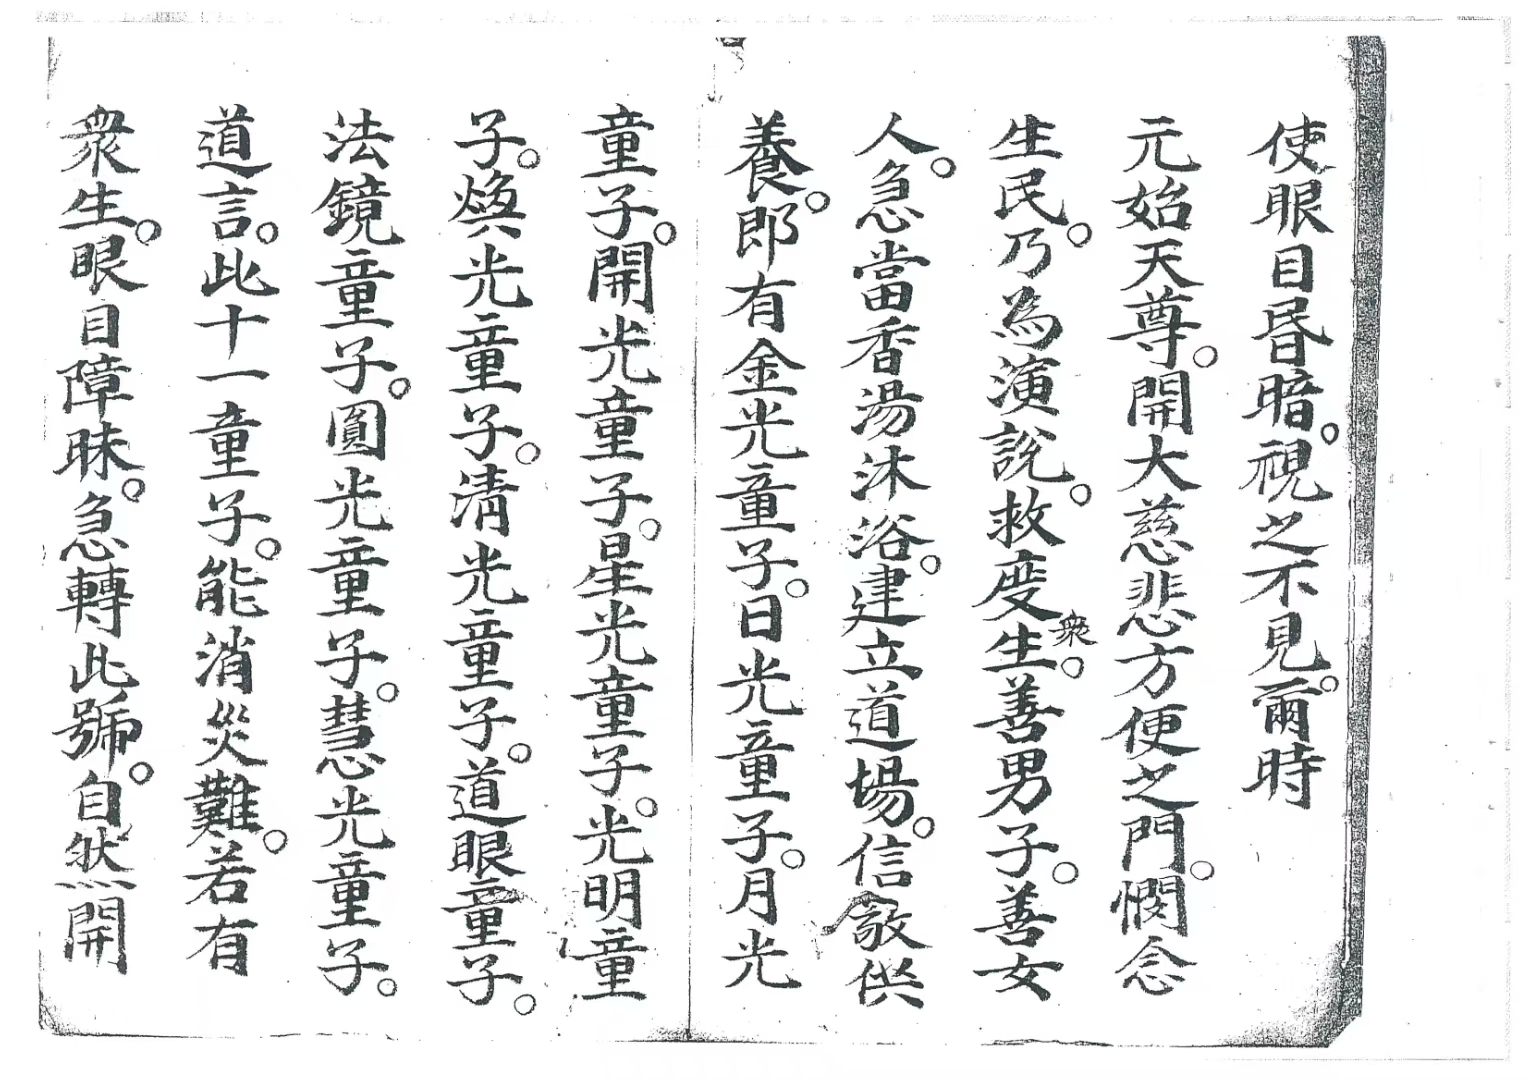 使眼目昏暗。視之不見。爾時
元始天尊。開大慈悲方便之門。憫念
生民。乃為演説。救度衆生。善男子。善女
人。急當香湯沐浴。建立道場。信敬供
養。郎有金光童子。日光童子。月光
童子。開光童子。星光童子。光明童
子。煥光童子。清光童子。道眼童子。
法鏡童子。圓光童子。慧光童子。
道言。此十一童子。能消災難。若有
衆生。眼目障昧。急轉此號。自然開